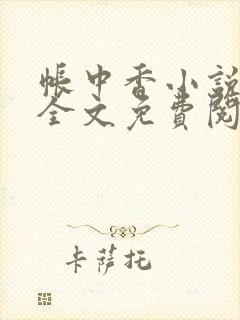 帳中香小說
全文免費閱
卡薩托